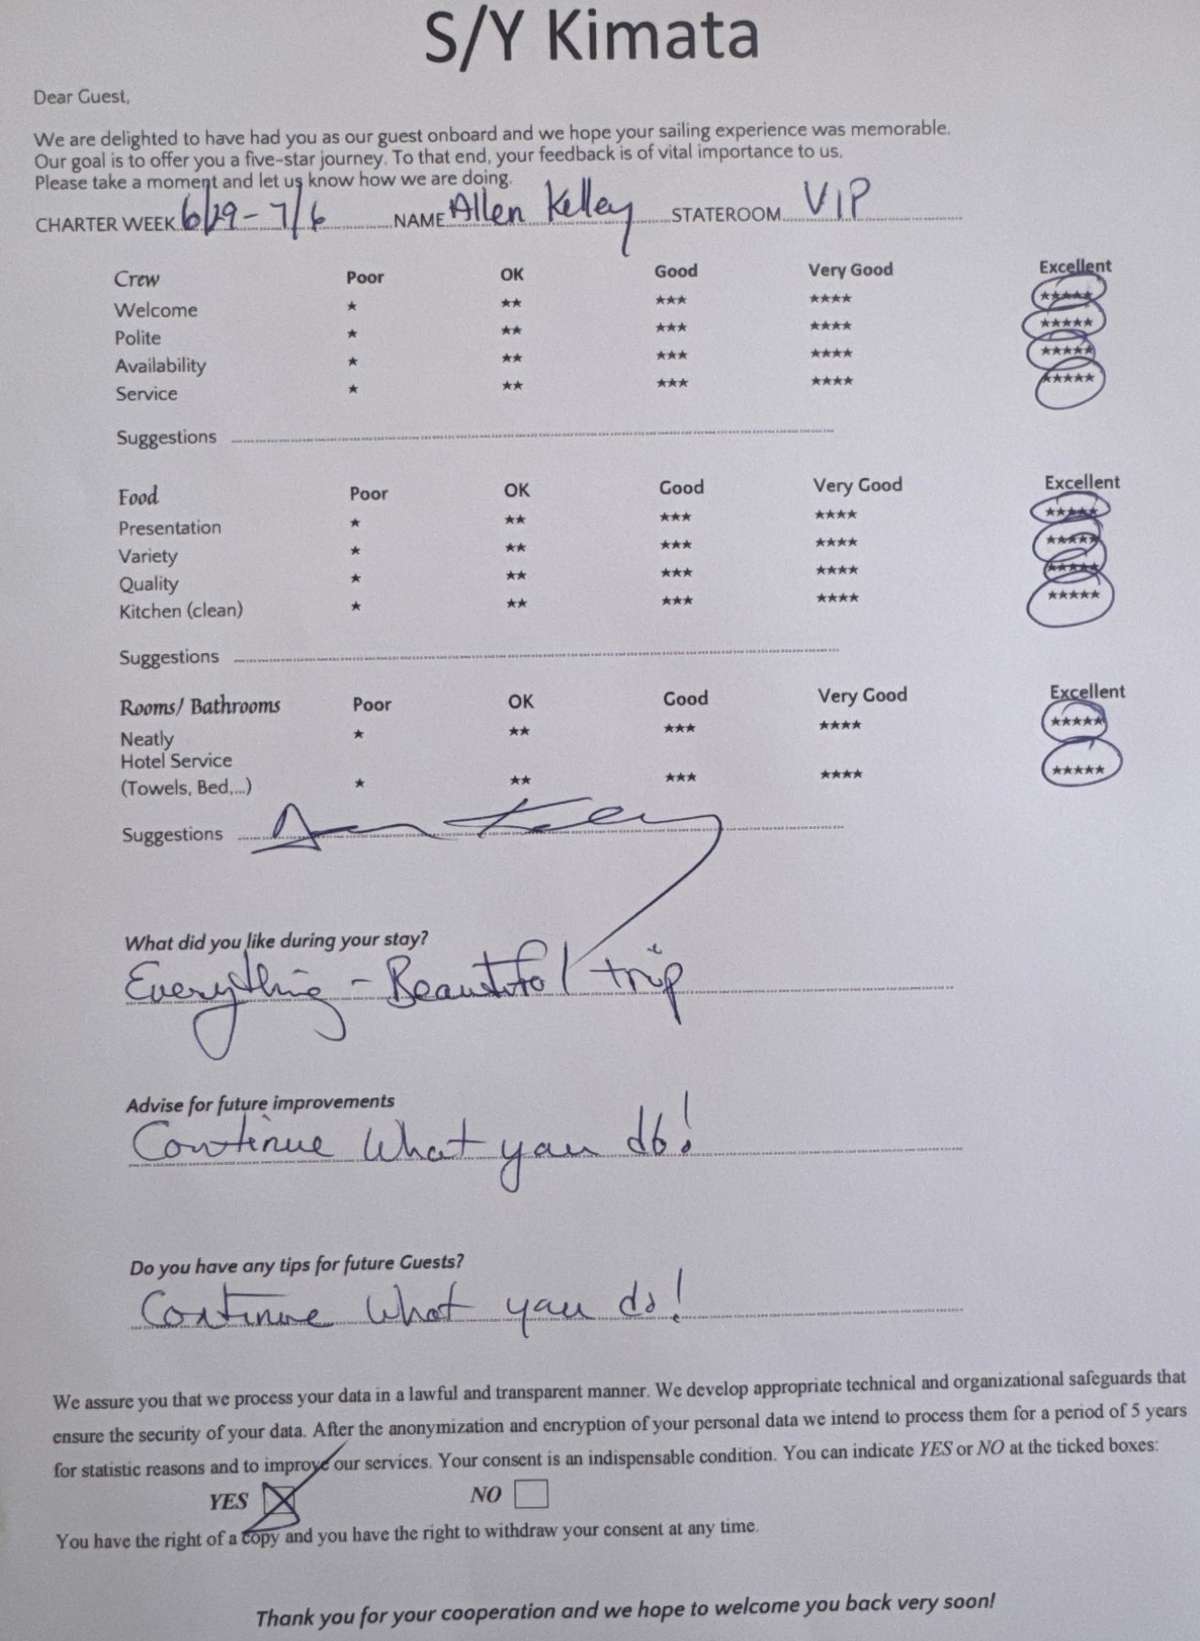 S/Y Kimata
Dear Guest,
We are delighted to have had you as our guest onboard and we hope your sailing experience was memorable.
Our goal is to offer you a five-star journey. To that end, your feedback is of vital importance to us.
Please take a moment and let us know how we are doing.
CHARTER WEEK 6/29 - 7/6 NAME Allen Kelley STATEROOM VIP
Crew Poor OK Good Very Good Excellent
Welcome ★ ★★ ★★★ ★★★★ ★★★★★
Polite ★ ★★ ★★★ ★★★★ ★★★★★
Availability ★ ★★ ★★★ ★★★★ ★★★★★
Service ★ ★★ ★★★ ★★★★ ★★★★★
Suggestions
Food Poor OK Good Very Good Excellent
Presentation ★ ★★ ★★★ ★★★★ ★★★★★
Variety ★ ★★ ★★★ ★★★★ ★★★★★
Quality ★ ★★ ★★★ ★★★★ ★★★★★
Kitchen (clean) ★ ★★ ★★★ ★★★★ ★★★★★
Suggestions
Rooms/ Bathrooms Poor OK Good Very Good Excellent
Neatly ★ ★★ ★★★ ★★★★ ★★★★★
Hotel Service
(Towels, Bed,...) ★ ★★ ★★★ ★★★★ ★★★★★
Suggestions
What did you like during your stay?
Everything - Beautiful trip
Advise for future improvements
Continue What you do!
Do you have any tips for future Guests?
Continue What you do!
We assure you that we process your data in a lawful and transparent manner. We develop appropriate technical and organizational safeguards that
ensure the security of your data. After the anonymization and encryption of your personal data we intend to process them for a period of 5 years
for statistic reasons and to improve our services. Your consent is an indispensable condition. You can indicate YES or NO at the ticked boxes:
YES NO
You have the right of a copy and you have the right to withdraw your consent at any time.
Thank you for your cooperation and we hope to welcome you back very soon!